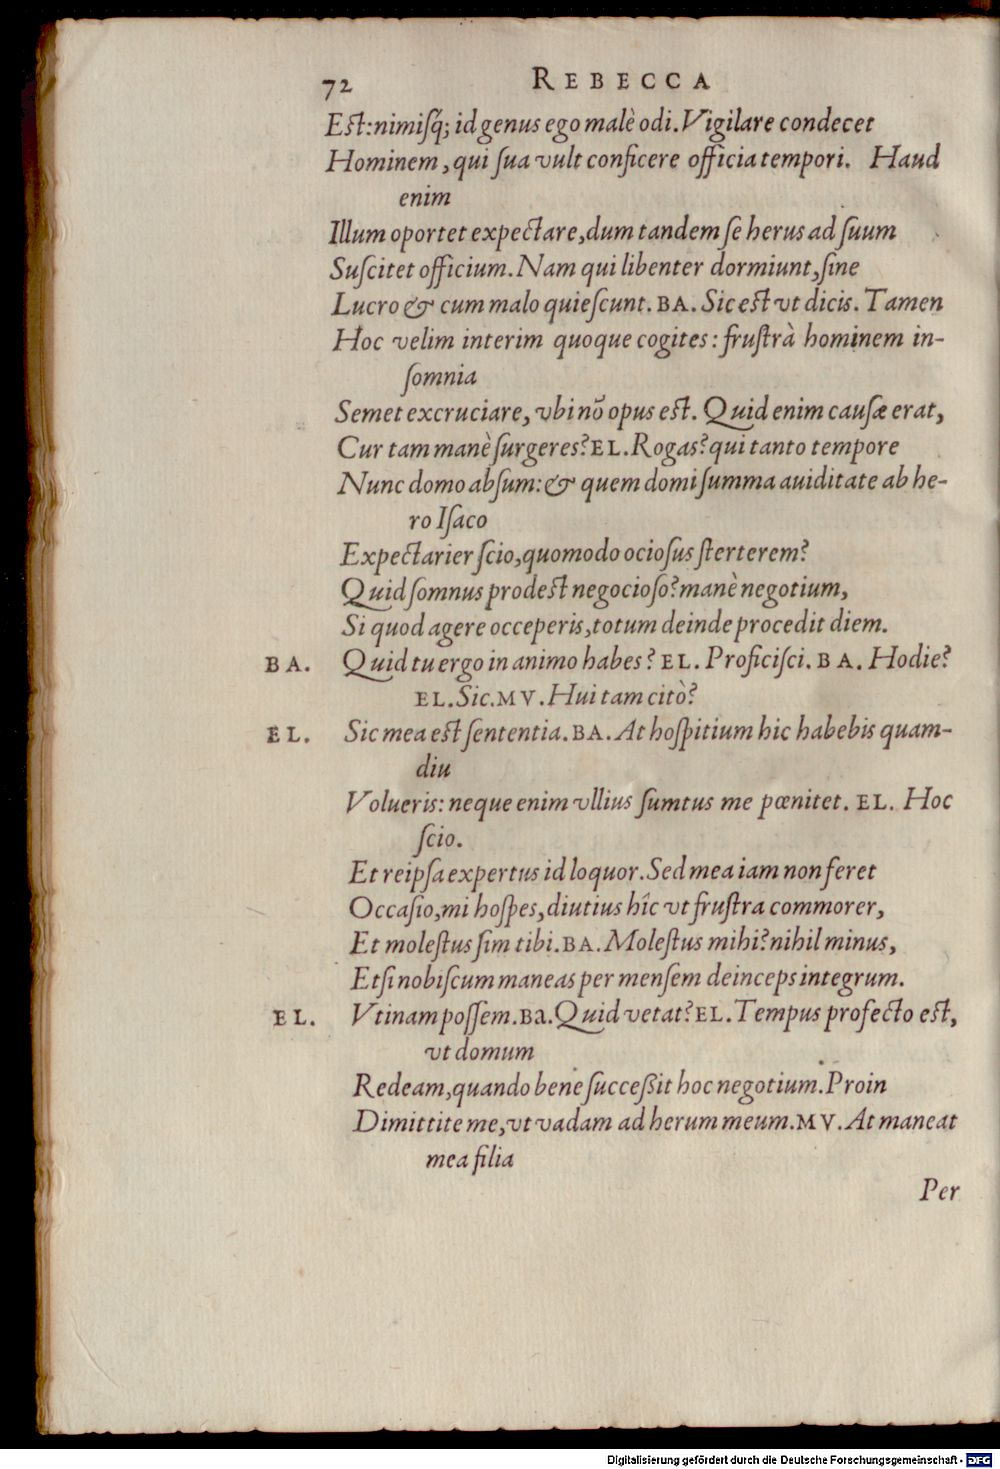 72 REBECCA
Est: nimisq́; id genus ego malè odi. Vigilare condecet
Hominem, qui sua vult conficere officia tempori. Haud
enim
Illum oportet expectare, dum tandem se herus ad suum
Suscitet officium. Nam qui libenter dormiunt, sine
Lucro & cum malo quiescunt. BA. Sic est vt dicis. Tamen
Hoc velim interim quoque cogites: frustrà hominem in-
somnia
Semet excruciare, vbi nō opus est. Quid enim causæ erat,
Cur tam manè surgeres? EL. Rogas? qui tanto tempore
Nunc domo absum: & quem domi summa auiditate ab he-
ro Isaco
Expectarier scio, quomodo ociosus sterterem?
Quid somnus prodest negocioso? manè negotium,
Si quod agere occeperis, totum deinde procedit diem.
BA. Quid tu ergo in animo habes? EL. Proficisci. BA. Hodie?
EL. Sic. MV. Hui tam citò?
EL. Sic mea est sententia. BA. At hospitium hic habebis quam-
diu
Volueris: neque enim vllius sumtus me pœnitet. EL. Hoc
scio.
Et reipsa expertus id loquor. Sed mea iam non feret
Occasio, mi hospes, diutius hîc vt frustra commorer,
Et molestus sim tibi. BA. Molestus mihi? nihil minus,
Etsi nobiscum maneas per mensem deinceps integrum.
EL. Vtinam possem. Ba. Quid vetat? EL. Tempus profecto est,
vt domum
Redeam, quando bene successit hoc negotium. Proin
Dimittite me, vt vadam ad herum meum. MV. At maneat
mea filia
Per
Digitalisierung gefördert durch die Deutsche Forschungsgemeinschaft - DFG